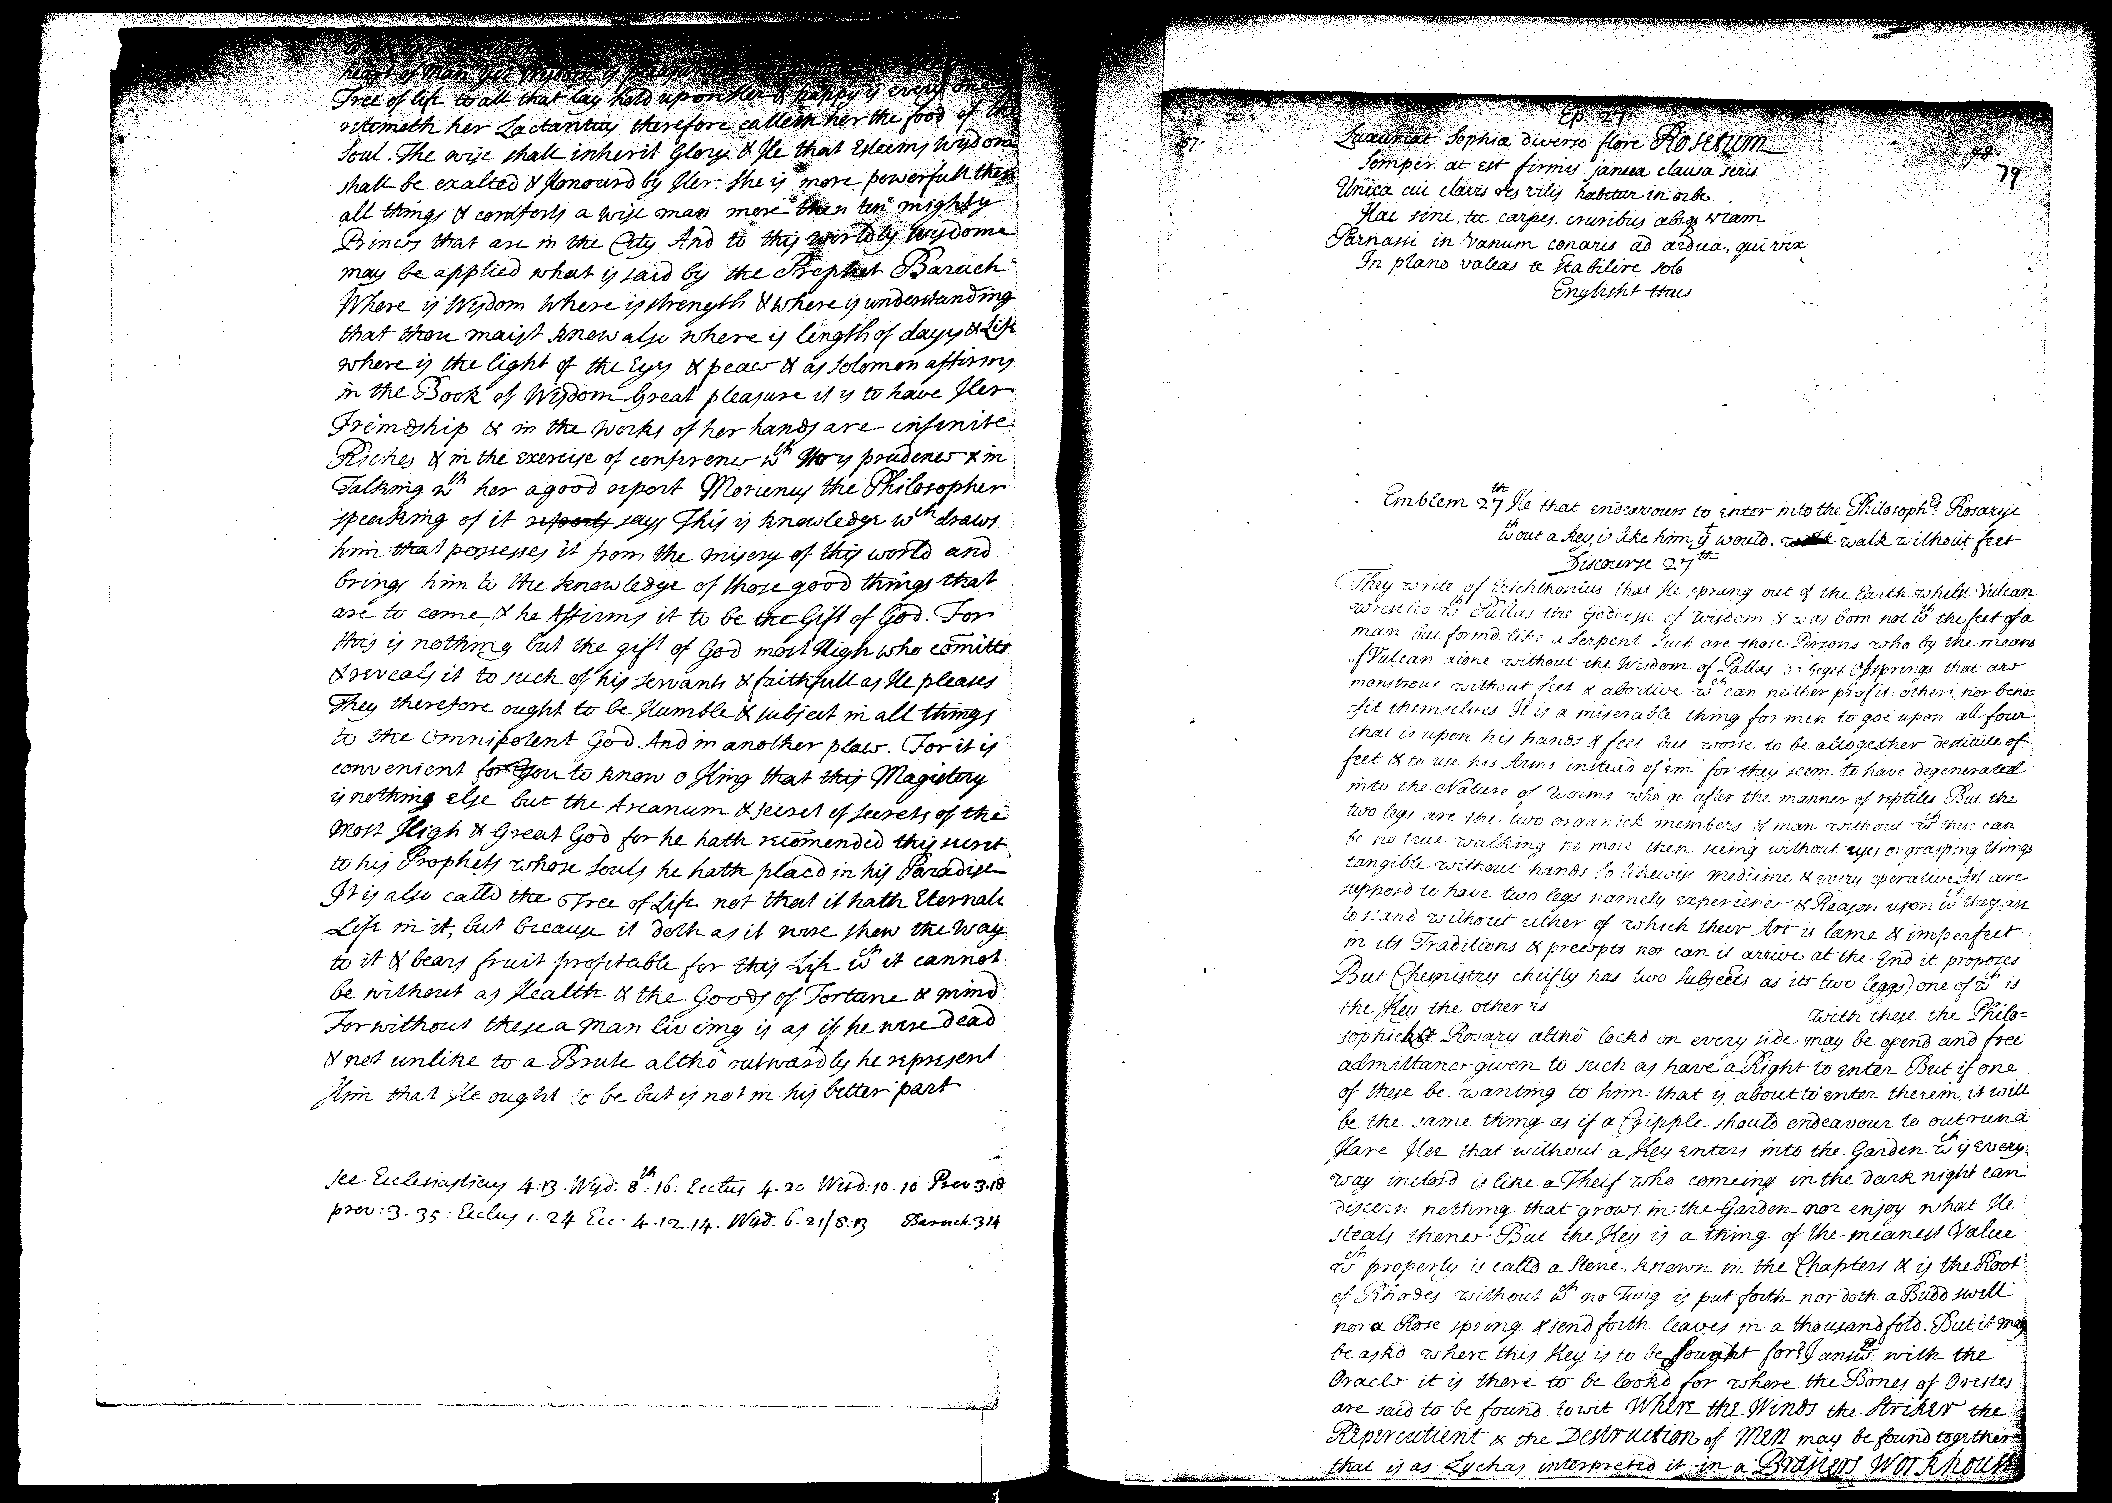 heart of man yet Wisdom is
Tree of life to all that lay hold upon Her & happy is every one
retaineth her Lactantius therefore calleth her the food of the
Soul. The wise shall inherit Glory & He that Esteems Wysdom
shall be exalted & Honourd by Her. She is more powerfull then
all things & comforts a wise man more then ten mighty
Princes that are in the City And to this worldly Wysdome
may be applied what is said by the Prophet Baruch
Where is Wysdom where is strength & where is understanding
that thou maist know also where is length of days & Life
where is the light of the Eyes & peace & as Solomon affirms
in the Book of Wysdom Great pleasure it is to have Her
Freindship & in the works of her hands are infinite
Riches & in the exercise of conference wth Her is prudence & in
Talking wth her a good report Morienus the Philosopher
speaking of it reports says This is knowledge wch draws
him that possesses it from the misery of this world and
brings him to the knowledge of those good things that
are to come, & he Affirms it to be the Gift of God. For
this is nothing but the gift of God most High who comitts
& reveals it to such of his servants & faithfull as He pleases
They therefore ought to be Humble & subject in all things
to the Omnipotent God And in another place. For it is
convenient for You to know o King that this Magistery
is nothing else but the Arcanum & secret of secrets of the
Most High & Great God for he hath recomended this secret
to his Prophets whose Souls he hath placd in his Paradise
It is also calld the Tree of Life not that it hath Eternall
Life in it, but because it doth as it were shew the way
to it & bears fruit profitable for this Life wch it cannot
be without as Health & the Goods of Fortune & mind
For without these a Man living is as if he were dead
& not unlike to a Brute altho outwardly he represent
Him that He ought to be but is not in his better part
see Ecclesiasticus 4.13 Wysd. 8th.16. Ecclus 4.20 Wisd.10.10 Prov 3.18
prov: 3.35: Ecclus 1.24 Ecc. 4.12.14. Wysd. 6.21/8.13 Baruch 3 14
Ep 27
57.
79
Luxuriat Sophiæ diverso flore Rosetum
Semper at est firmis janua clausa seris
Unica cui clavis res vilis habetur in orbe
Hac sine, tu carpes, cruribus absq viam
Parnassi in Vanum conaris ad ardua, qui vix
In plano valeas te stabilire solo
Englisht thus
Emblem 27th He that endeavours to enter into the Philosophs. Rosarye
wthout a Key, is like him yt would walk without feet
Discourse 27th
They write of Erichthonius that He sprung out of the Earth whilst Vulcan
wrestled wth Pallas the Goddesse of Wisdom & was born not wth the feet of a
man but formd like a Serpent Such are those Persons who by the means
of Vulcan alone without the Wisdom of Pallas beget Ofsprings that are
monstrous without feet & abortive wch can neither profit others nor bene-
fit themselves It is a miserable thing for men to goe upon all four
that is upon his hands & feet but worse to be altogether destitute of
feet & to use his Arms instead of em for they seem to have degenerated
into the Nature of Worms who go after the manner of reptiles But the
two legs are the two organick members of man without wch there can
be no true walking no more then seing without eyes or grasping things
tangible without hands So likewise medicine & every operative Art are
supposd to have two legs namely experience & Reason upon wch they are
to stand without either of which their Art is lame & imperfect
in its Traditions & precepts nor can it arrive at the End it proposes
But Chemistry cheifly has two Subjects as its two leggs, one of wch is
the Key the other is with these the Philo=
sophick Rosary altho lockd on every side may be opend and free
admittance given to such as have a Right to enter But if one
of these be wanting to him that is about to enter therein, it will
be the same thing as if a Cripple should endeavour to outrun a
Hare Hee that without a Key enters into the Garden wch is every
way inclosd is like a Theif who comeing in the dark night can
discern nothing that grows in the Garden nor enjoy what He
steals thence But the Key is a thing of the meanest Value
wch properly is calld a Stone, known in the Chapters & is the Root
of Rhodes without wch no Twig is put forth nor doth a Budd swell
nor a Rose spring & send forth leaves in a thousand fold. But it may
be askd where this Key is to be sought for? I answr with the
Oracle it is there to be lookd for where the Bones of Orestes
are said to be found to wit Where the Winds the Striker the
Repercutient & the Destruction of Men may be found together
that is as Lychas interpreted it in a Brasiers Workhouse